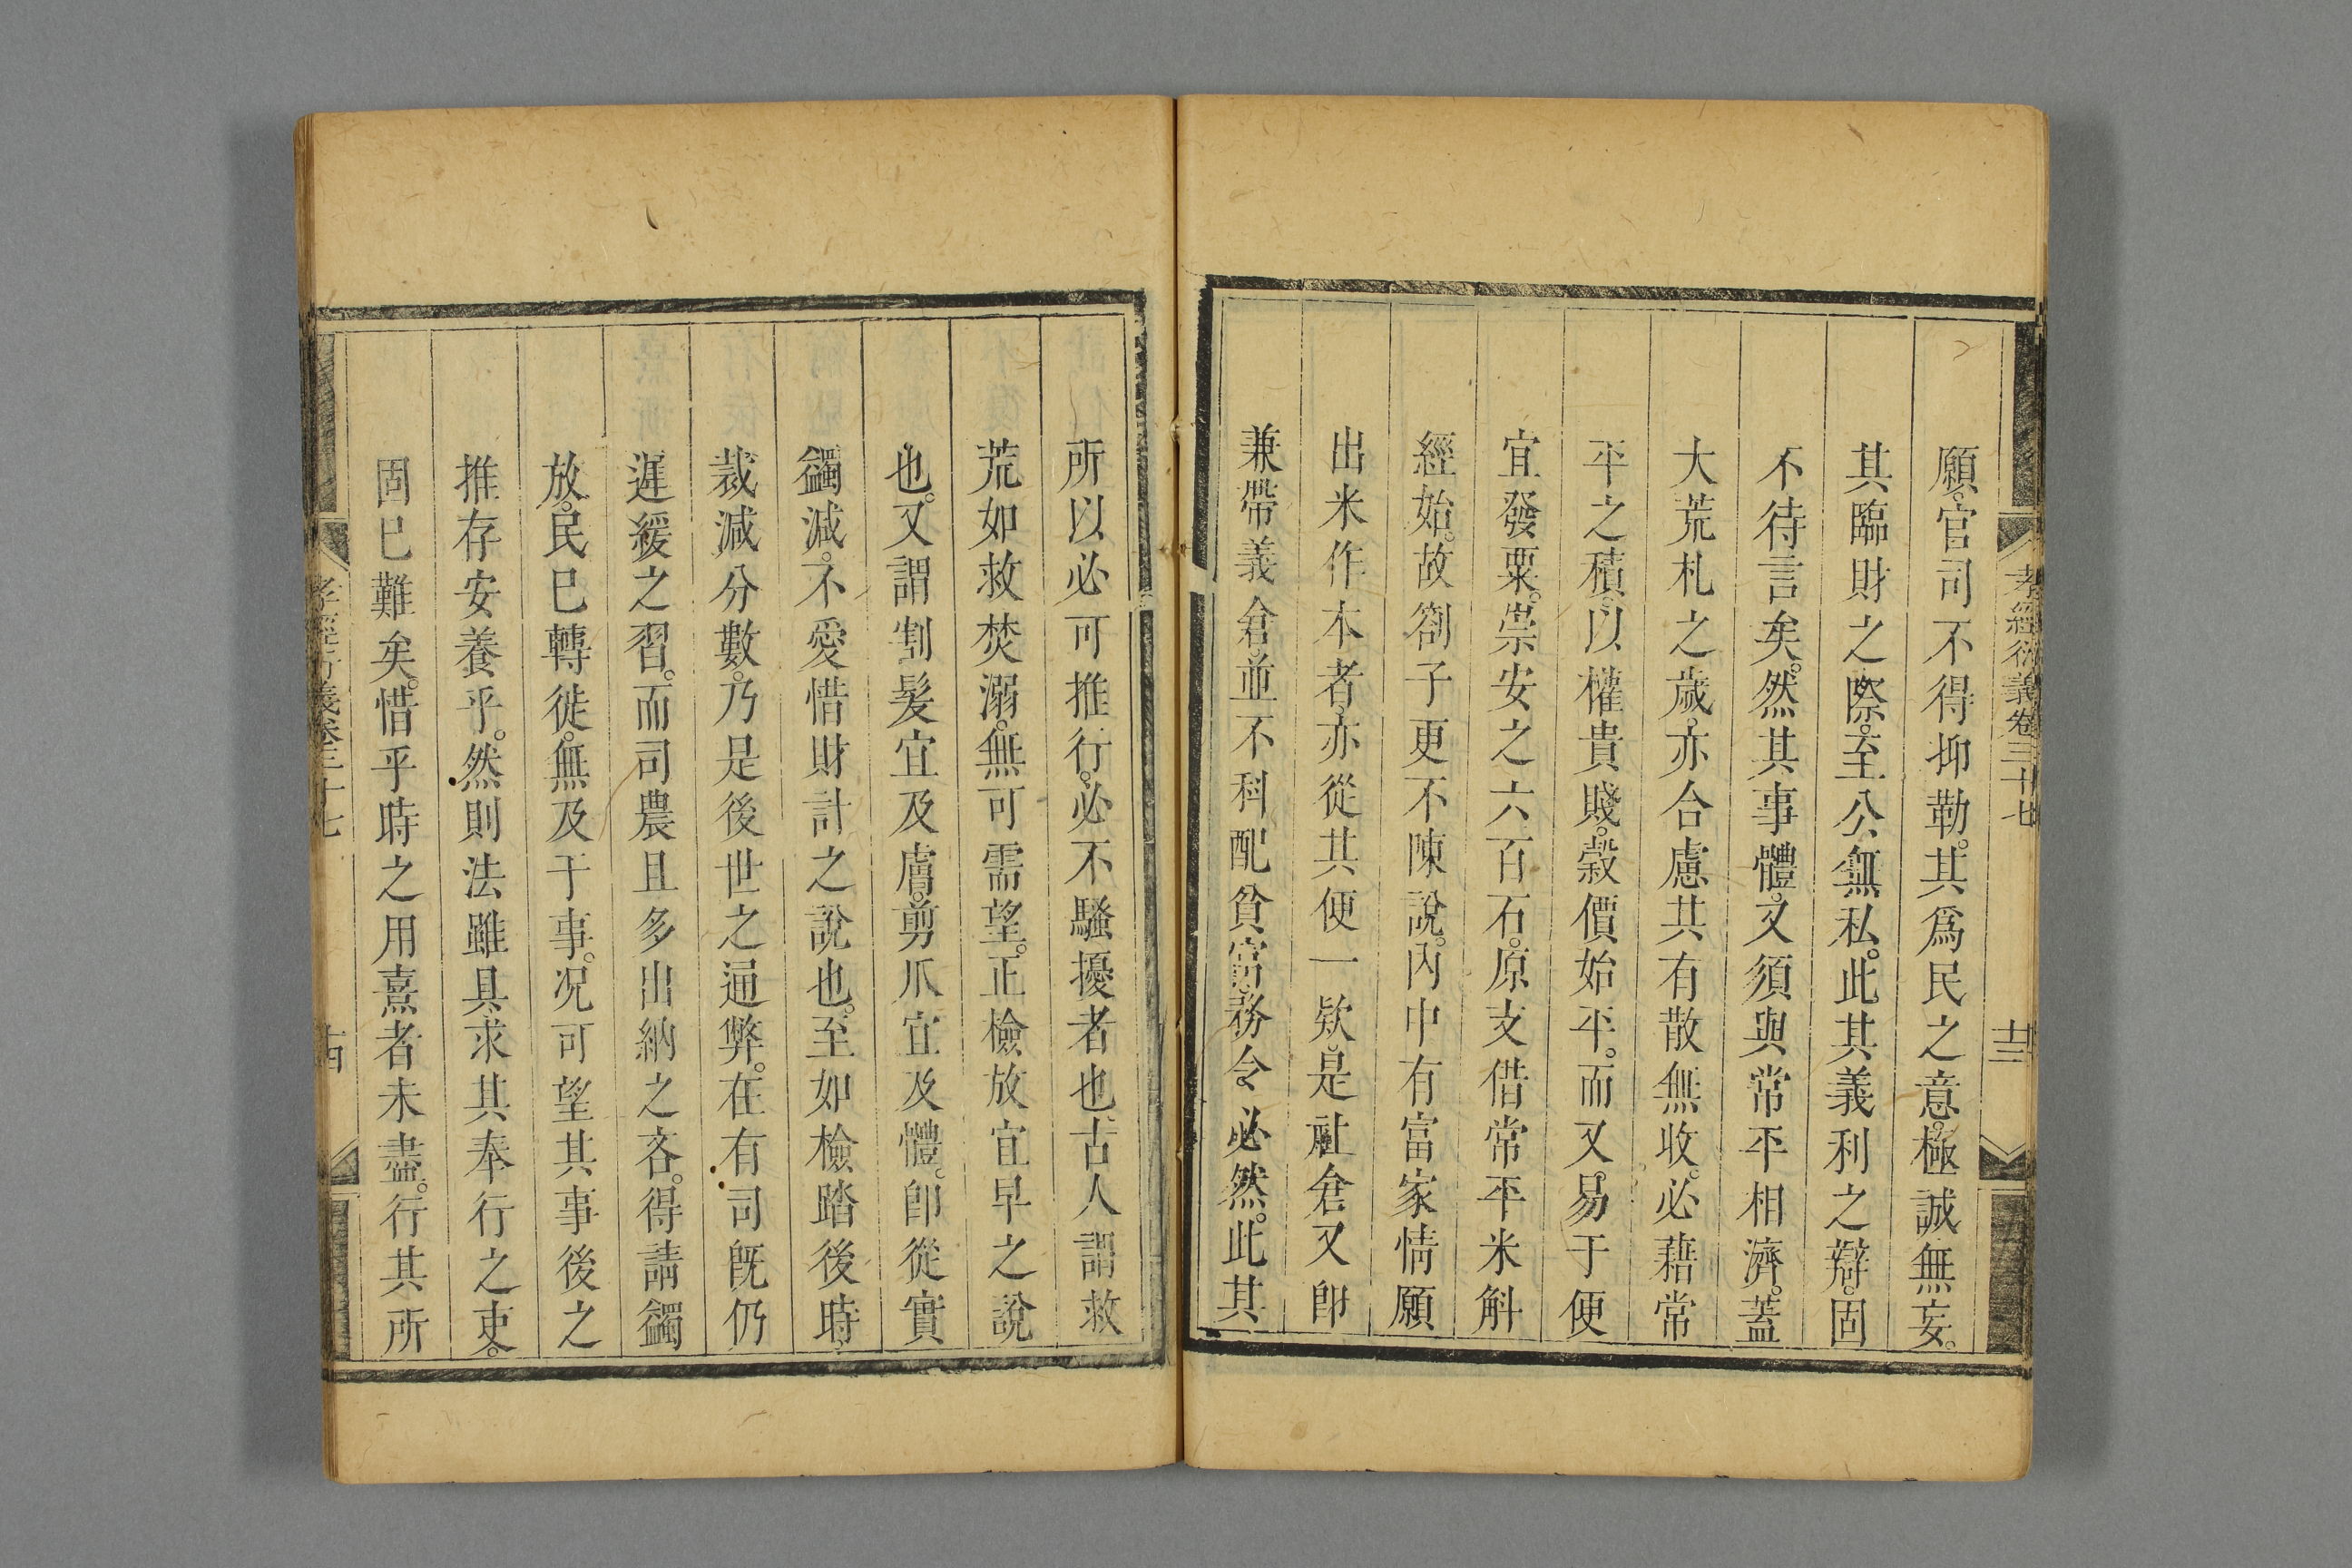 孝經衍義卷三十七
願。官司不得抑勒。其爲民之意。極誠無妄。
其臨財之際。至公無私。此其義利之辯。固
不待言矣。然其事體。又須與常平相濟。蓋
大荒札之歲。亦合慮其有散無收。必藉常
平之積。以權貴賤。穀價始平。而又易于便
宜發粟。崇安之六百石。原支借常平米斛
經始。故劄子更不陳說。內中有富家情願
出米作本者。亦從其便一欵。是社倉又卽
兼帶義倉。並不科配貧富。務令必然。此其
所以必可推行。必不騷擾者也古人謂救
荒如救焚溺。無可需望。正檢放宜早之說
也。又謂割髮宜及膚。剪爪宜及體。卽從實
蠲減。不愛惜財計之說也。至如檢踏後時。
裁減分數。乃是後世之通弊。在有司旣仍
遲緩之習。而司農且多出納之吝。得請蠲
放。民已轉徙。無及于事。况可望其事後之
推存安養乎。然則法雖具。求其奉行之吏。
固已難矣。惜乎時之用熹者未盡。行其所
孝經衍義卷三十七